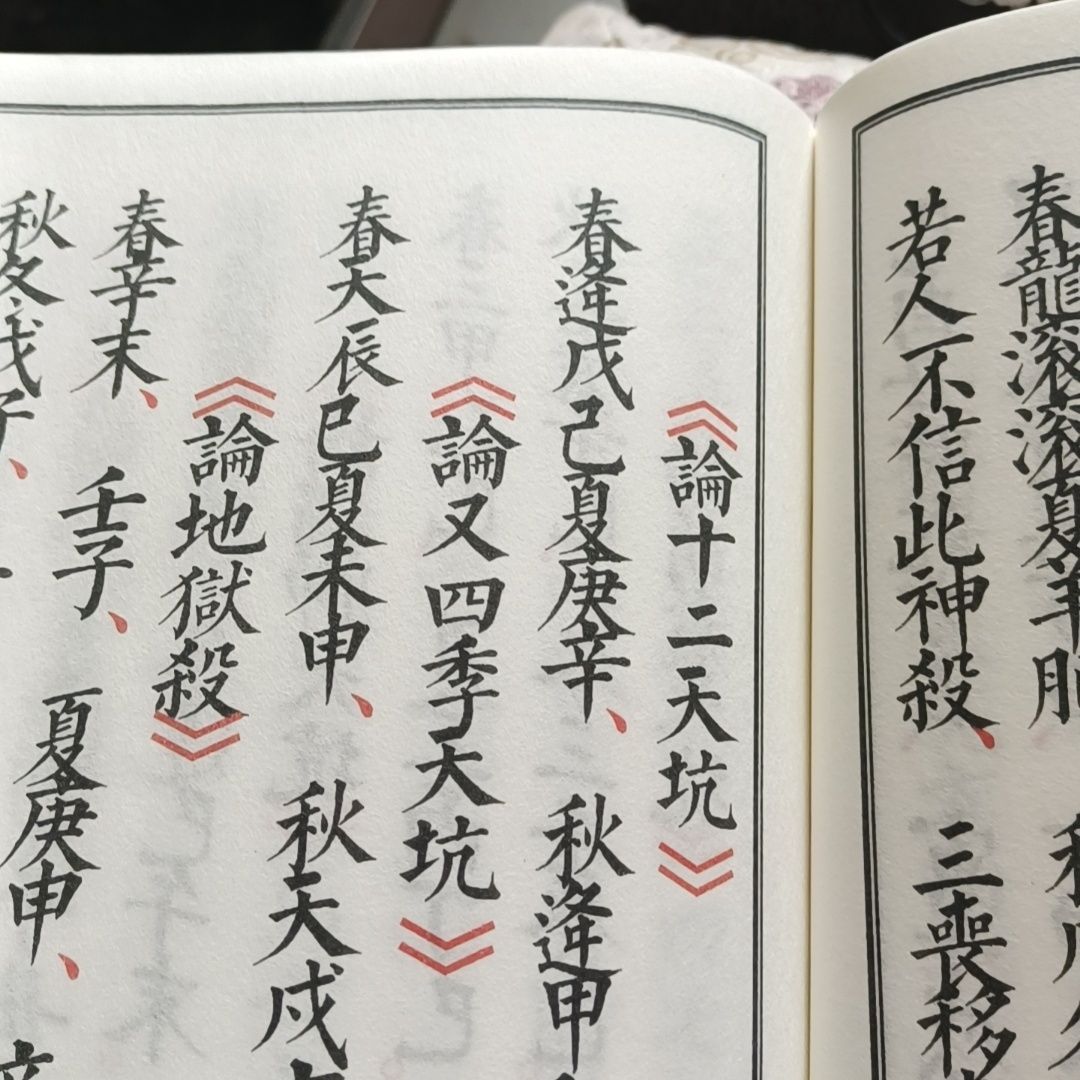 春龍滾滾夏羊
若人不信此神殺、 三喪移
《論十二天坑》
春逢戊己夏庚辛、 秋逢甲
《論又四季大坑》
春天辰巳夏未申、 秋天戌
《論地獄殺》
春辛末、 壬子、 夏庚申、
秋